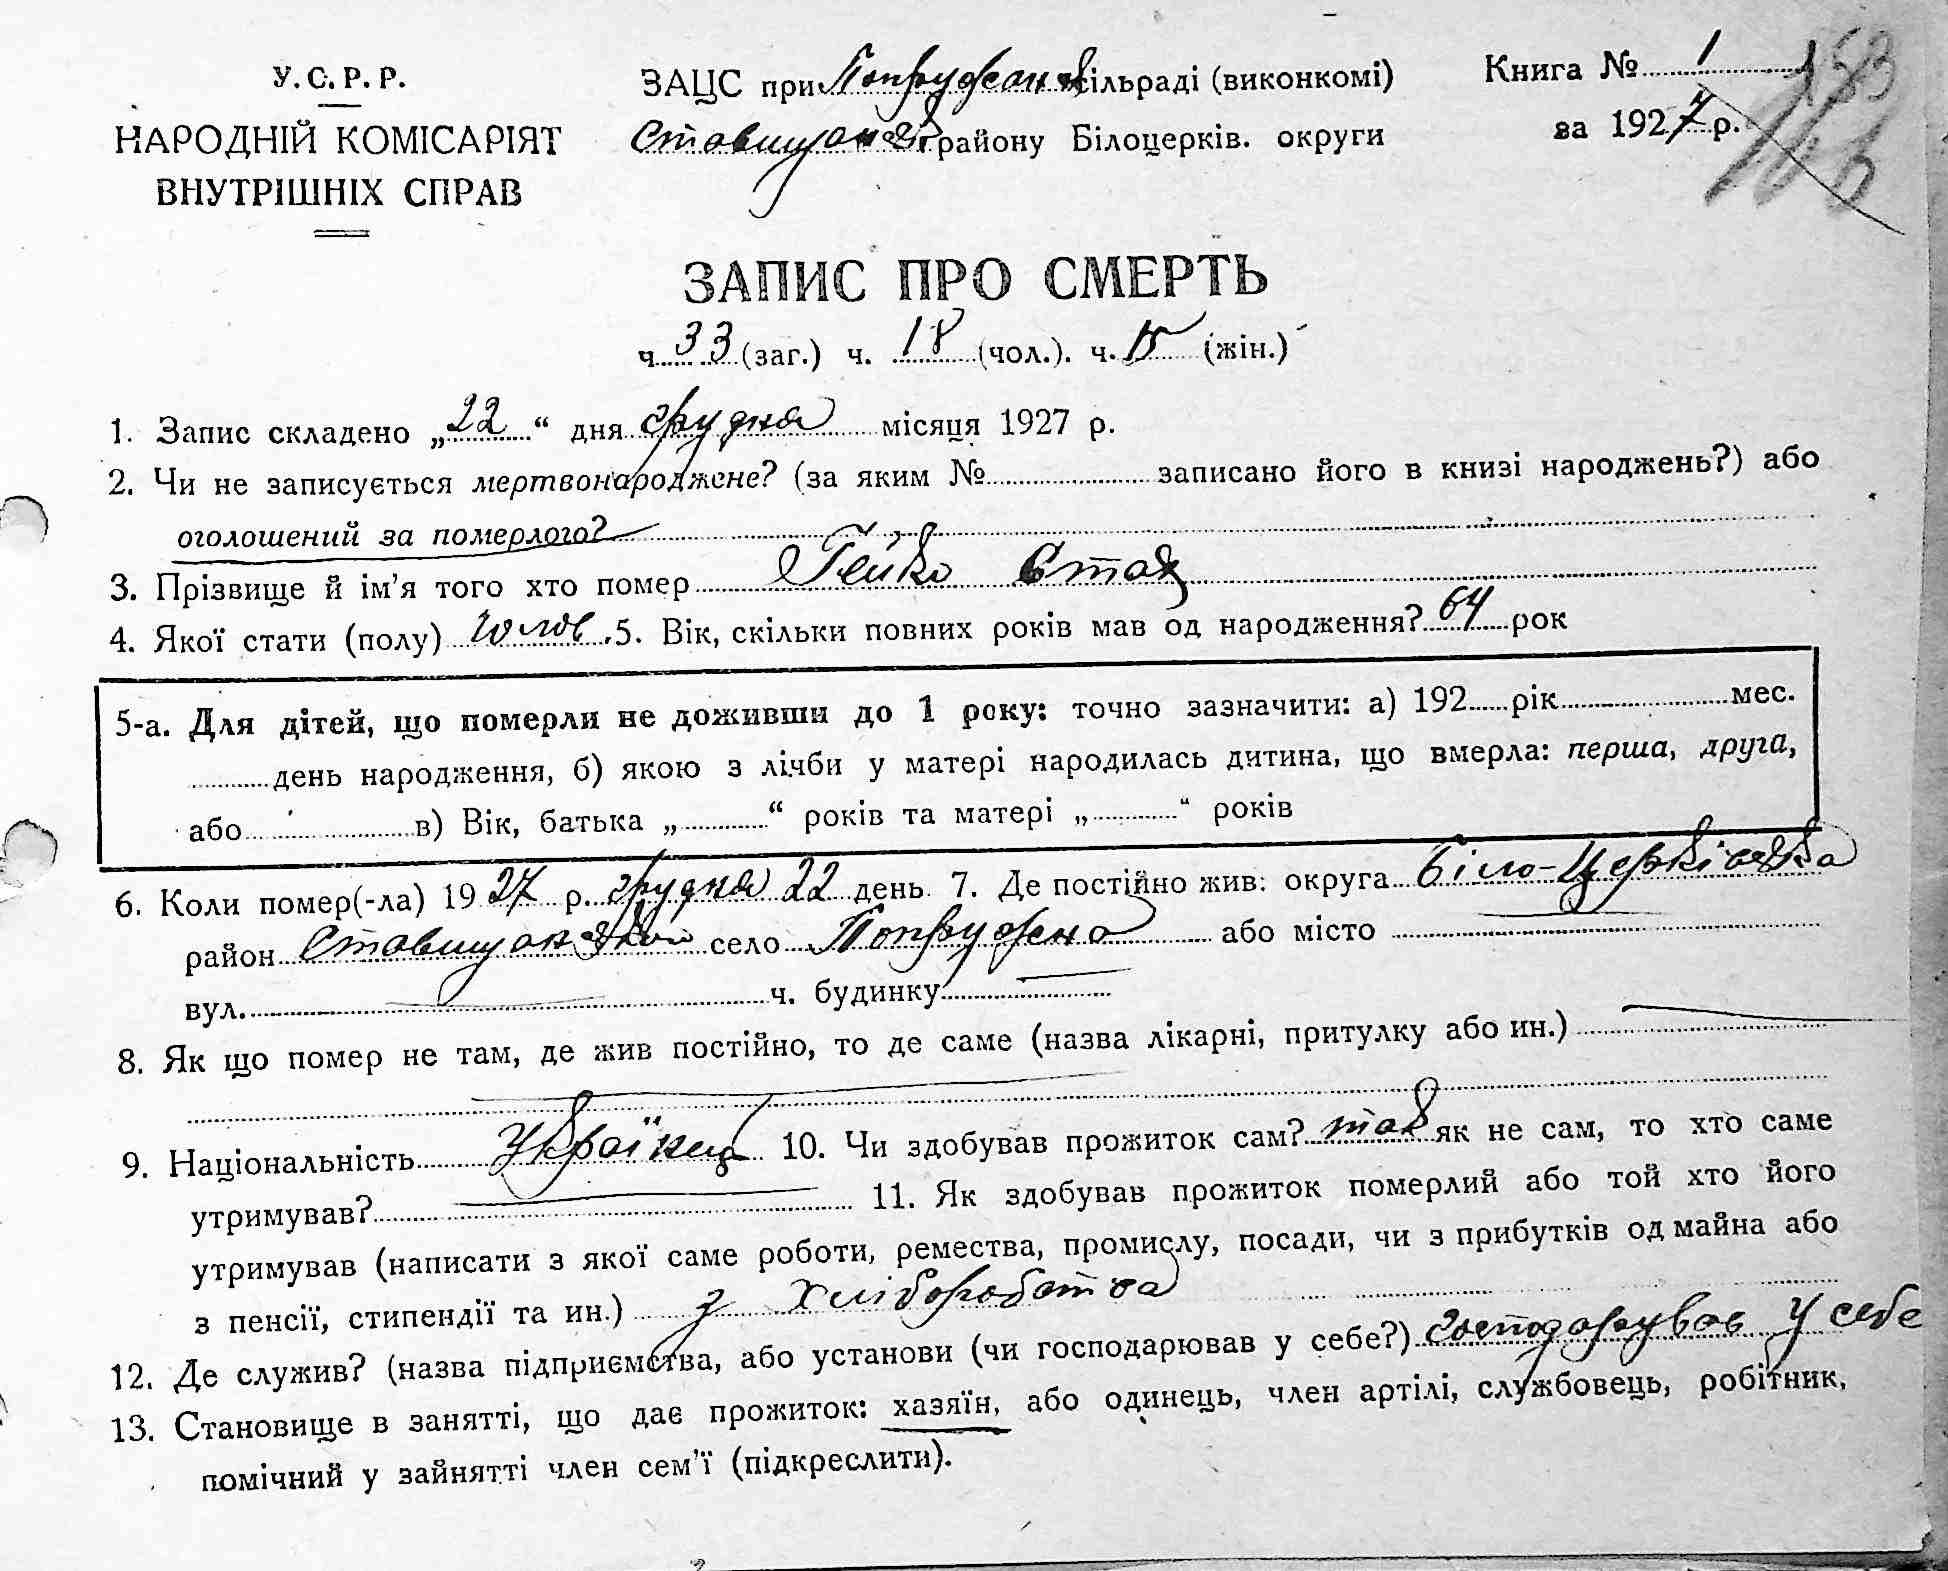 У.С.Р.Р.
НАРОДНІЙ КОМІСАРІЯТ
ВНУТРІШНІХ СПРАВ
ЗАЦС при Попружан сільраді (виконкомі)
Ставищан району Білоцерків. округи
Книга № 1
за 1927 р.
153
ЗАПИС ПРО СМЕРТЬ
ч. 33 (заг.) ч. 18 (чол.). ч. 15 (жін.)
1. Запис складено „22“ дня грудня місяця 1927 р.
2. Чи не записується мертвонароджене? (за яким № записано його в книзі народжень?) або
оголошений за померлого?
3. Прізвище й ім'я того хто помер Гейко Остап
4. Якої стати (полу) чолов. 5. Вік, скільки повних років мав од народження? 64 рок
5-а. Для дітей, що померли не доживши до 1 року: точно зазначити: а) 192 рік мес.
день народження, б) якою з лічби у матері народилась дитина, що вмерла: перша, друга,
або в) Вік, батька „ “ років та матері „ “ років
6. Коли помер(-ла) 1927 р. грудня 22 день 7. Де постійно жив: округа Біло-Церківська
район Ставищанський село Попружна або місто
вул. ч. будинку
8. Як що помер не там, де жив постійно, то де саме (назва лікарні, притулку або ин.)
9. Національність Українець 10. Чи здобував прожиток сам? так як не сам, то хто саме
утримував? 11. Як здобував прожиток померлий або той хто його
утримував (написати з якої саме роботи, ремества, промислу, посади, чи з прибутків од майна або
з пенсії, стипендії та ин.) з хліборобства
12. Де служив? (назва підприємства, або установи (чи господарював у себе?) господарував у себе
13. Становище в занятті, що дає прожиток: хазяїн, або одинець, член артілі, службовець, робітник,
помічний у зайнятті член сем'ї (підкреслити).